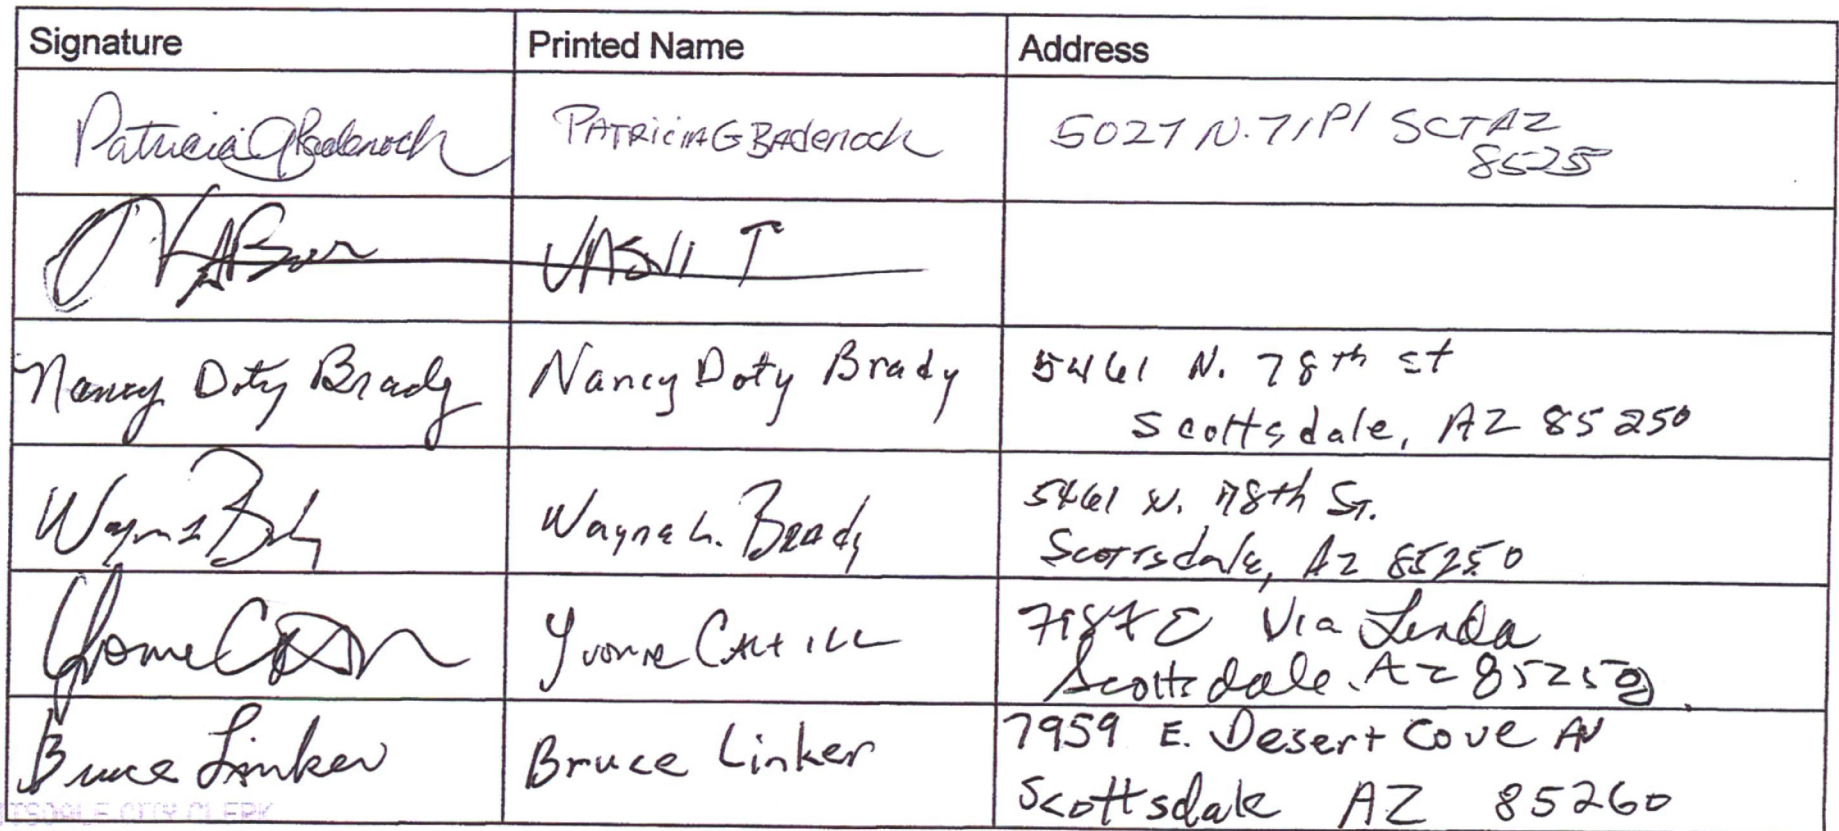 Signature Printed Name Address
Patricia G Badenoch PATRiCiA G BADenoch 5027 N. 71 Pl SCT AZ
8525
VASili T
Nancy Doty Brady Nancy Doty Brady 5461 N. 78th st
Scottsdale, AZ 85250
Wayne L. Brady 5461 N. 78th St.
Scottsdale, Az 85250
Yvonne 7187 E Via Linda
Scottsdale. AZ 85250
Bruce Linker Bruce Linker 7959 E. Desert Cove Av
Scottsdale AZ 85260
CITY CLERK